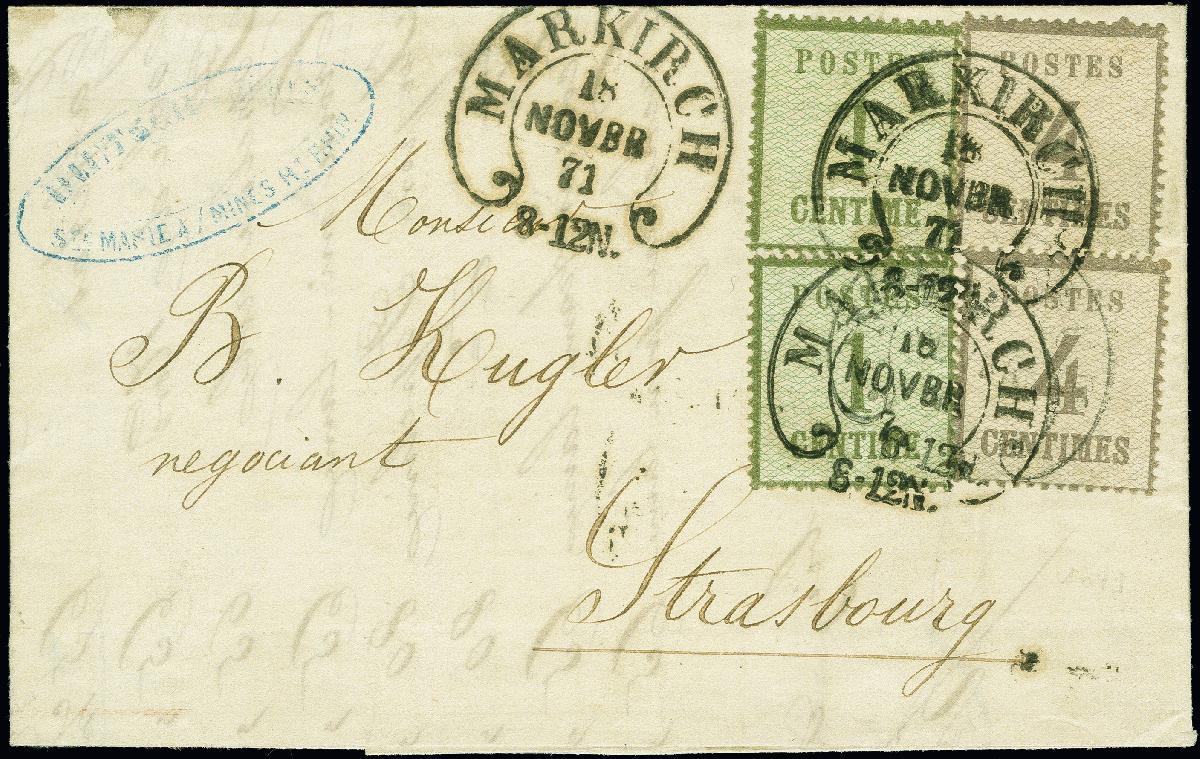 STE MARIE A/MINES HT RHIN
MARKIRCH
18
NOVBR
71
8-12N.
POSTES
1
CENTIME
POSTES
4
CENTIMES
MARKIRCH
18
NOVBR
71
8-12N.
POSTES
1
CENTIME
POSTES
4
CENTIMES
MARKIRCH
18
NOVBR
71
8-12N.
Monsieur
B. Kugler
negociant
Strasbourg